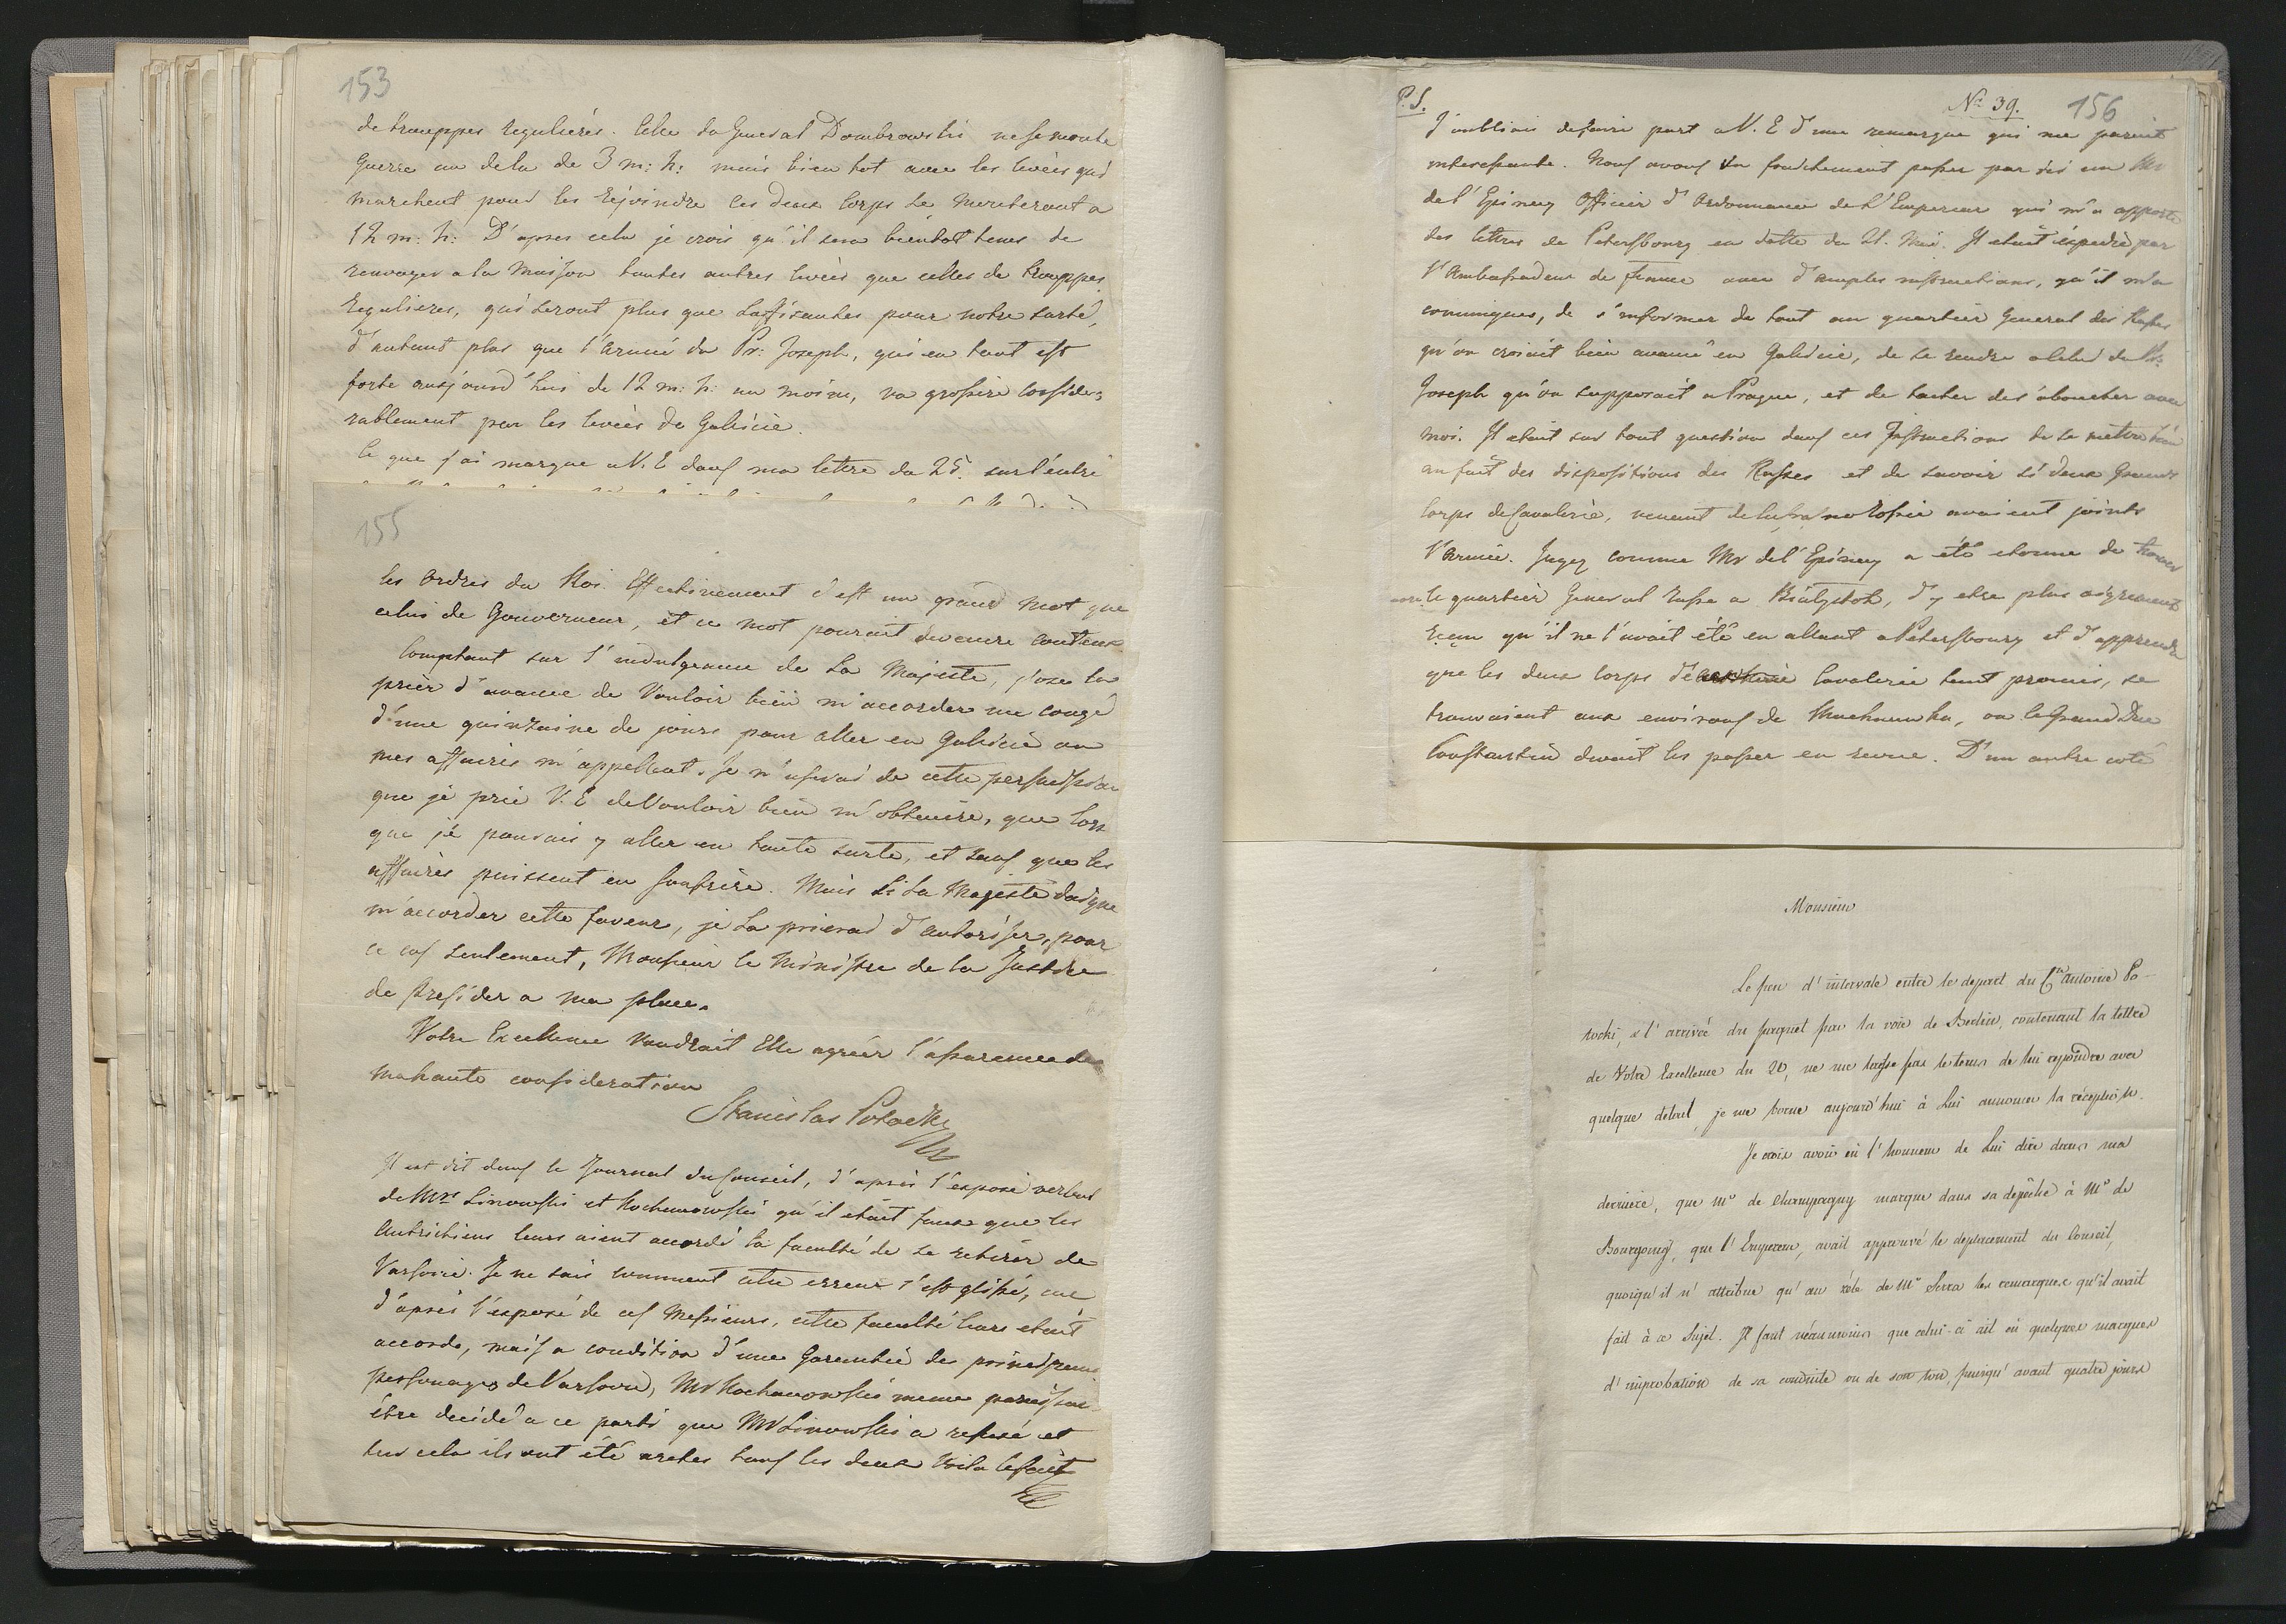 153
de trouppes regulieres. Celle du General Dombrowski ne se monte
guerre au dela de 3 m: h: mais bien tot avec les levées qui
marchent pour les rejoindre ces deux Corps se monteront a
12 m: h: D'apres cela je crois qu'il sera bientot tems de
renvoyer a la Maison toutes autres levées que celles de trouppes
regulieres, qui seront plus que suffisantes pour notre sureté,
d'autant plus que l'armée du Pr: Joseph, qui en tout est
forte aujourd'hui de 12 m: h: au moins, va grossire conside-
rablement par les levées de Galicie.
Ce que j'ai marque a V. E dans ma lettre du 25. sur l'entré
155
les ordres du Roi. Effectivement c'est un grand mot que
celui de Gouverneur, et ce mot pourait devenire couteux
Comptant sur l'indulgence de Sa Majeste, j'ose la
prier d'avance de Vouloir bien m'accorder un congé
d'une quinzaine de jours pour aller en Galicie ou
mes affaires m'appellent. Je n'userai de cette permission
que je prie V. E de Vouloir bien m'obtenire, que lors
que je pourais y aller en toute surté, et sans que les
affaires puissent en soufrire. Mais si Sa Majesté daigne
m'accorder cette faveur, je La prierai d'autoriser, pour
ce cas seulement, Monsieur le Ministre de la Justice
de presider a ma place.
Votre Excellence Voudrait Elle agréér l'assurence de
ma haute consideration
Stanislas Potocki
Il est dit dans le Journal du Conseil, d'après l'exposé verbal
de Mrs Linowski et Kochanowski qu'il etait faux que les
Autrichiens leurs aient accordé la faculté de se retirer de
Varsovie. Je ne sais comment cette erreur s'est glissé, car
d'après l'exposé de ces Messieurs, cette faculté leurs etait
accordé, mais a condition d'une Garentie des principaux
personages de Varsovie, Mr Kochanowski meme paraissait
être decidé a ce parti que Mr Linowski a refusé et
sur cela ils ont été aretes tous les deux Voila le fait
P.S.
No 39.
156
J'oubliais de faire part a V. E d'une remarque qui me parait
interessante. Nous avons vu fraichement passer par ici un Mr
de l'Epinay Officier d'Ordonnance de l'Empereur qui m'a apporté
des lettres de Petersbourg en datte du 21. Mai. Il etait expedié par
l'Ambassadeur de France avec d'amples instructions, qu'il m'a
comuniques, de s'informer de tout au quartier General des Russes
qu'on croiait bien avancé en Galicie, de se rendre a celui du Pr:
Joseph qu'on supposait a Prague, et de tacher de s'aboucher avec
moi. Il etait sur tout question dans ces Instructions de se mettre bien
au fait des dispositions des Russes et de savoir si deux Grands
Corps de Cavalerie, venant de
avaient joints
l'Armée. Jugez comme Mr de l'Epinay a été etonné de trouver
le quartier General Russe a Białystok, d'y etre plus aigrement
reçeu qu'il ne l'avait été en allant a Petersbourg et d'apprendre
que les deux Corps de Cavalerie tant promis, se
trouvaient aux environs de
, ou le Grand Duc
Constantin devait les passer en revue. D'un autre coté
Monsieur
Le peu d'intervale entre le depart du Cte Antoine Po-
tocki, et l'arrivée du paquet par la voie de Berlin, contenant la lettre
de Votre Excellence du 20, ne me laisse pas le tems de lui repondre avec
quelque detail, je me borne aujourd'hui à Lui annoncer la réception.
Je crois avoir eu l'honneur de Lui dire dans ma
derniere, que Mr de Champagny marque dans sa depêche à Mr de
Bourgoing, que l'Empereur, avait approuvé le deplacement du Conseil,
quoiqu'il n'attribue qu'au zèle de Mr Serra les remarques qu'il avait
fait à ce Sujet. Il faut néanmoins que celui-ci ait eu quelques marques
d'improbation de sa conduite ou de son ton, puisqu'avant quatre jours